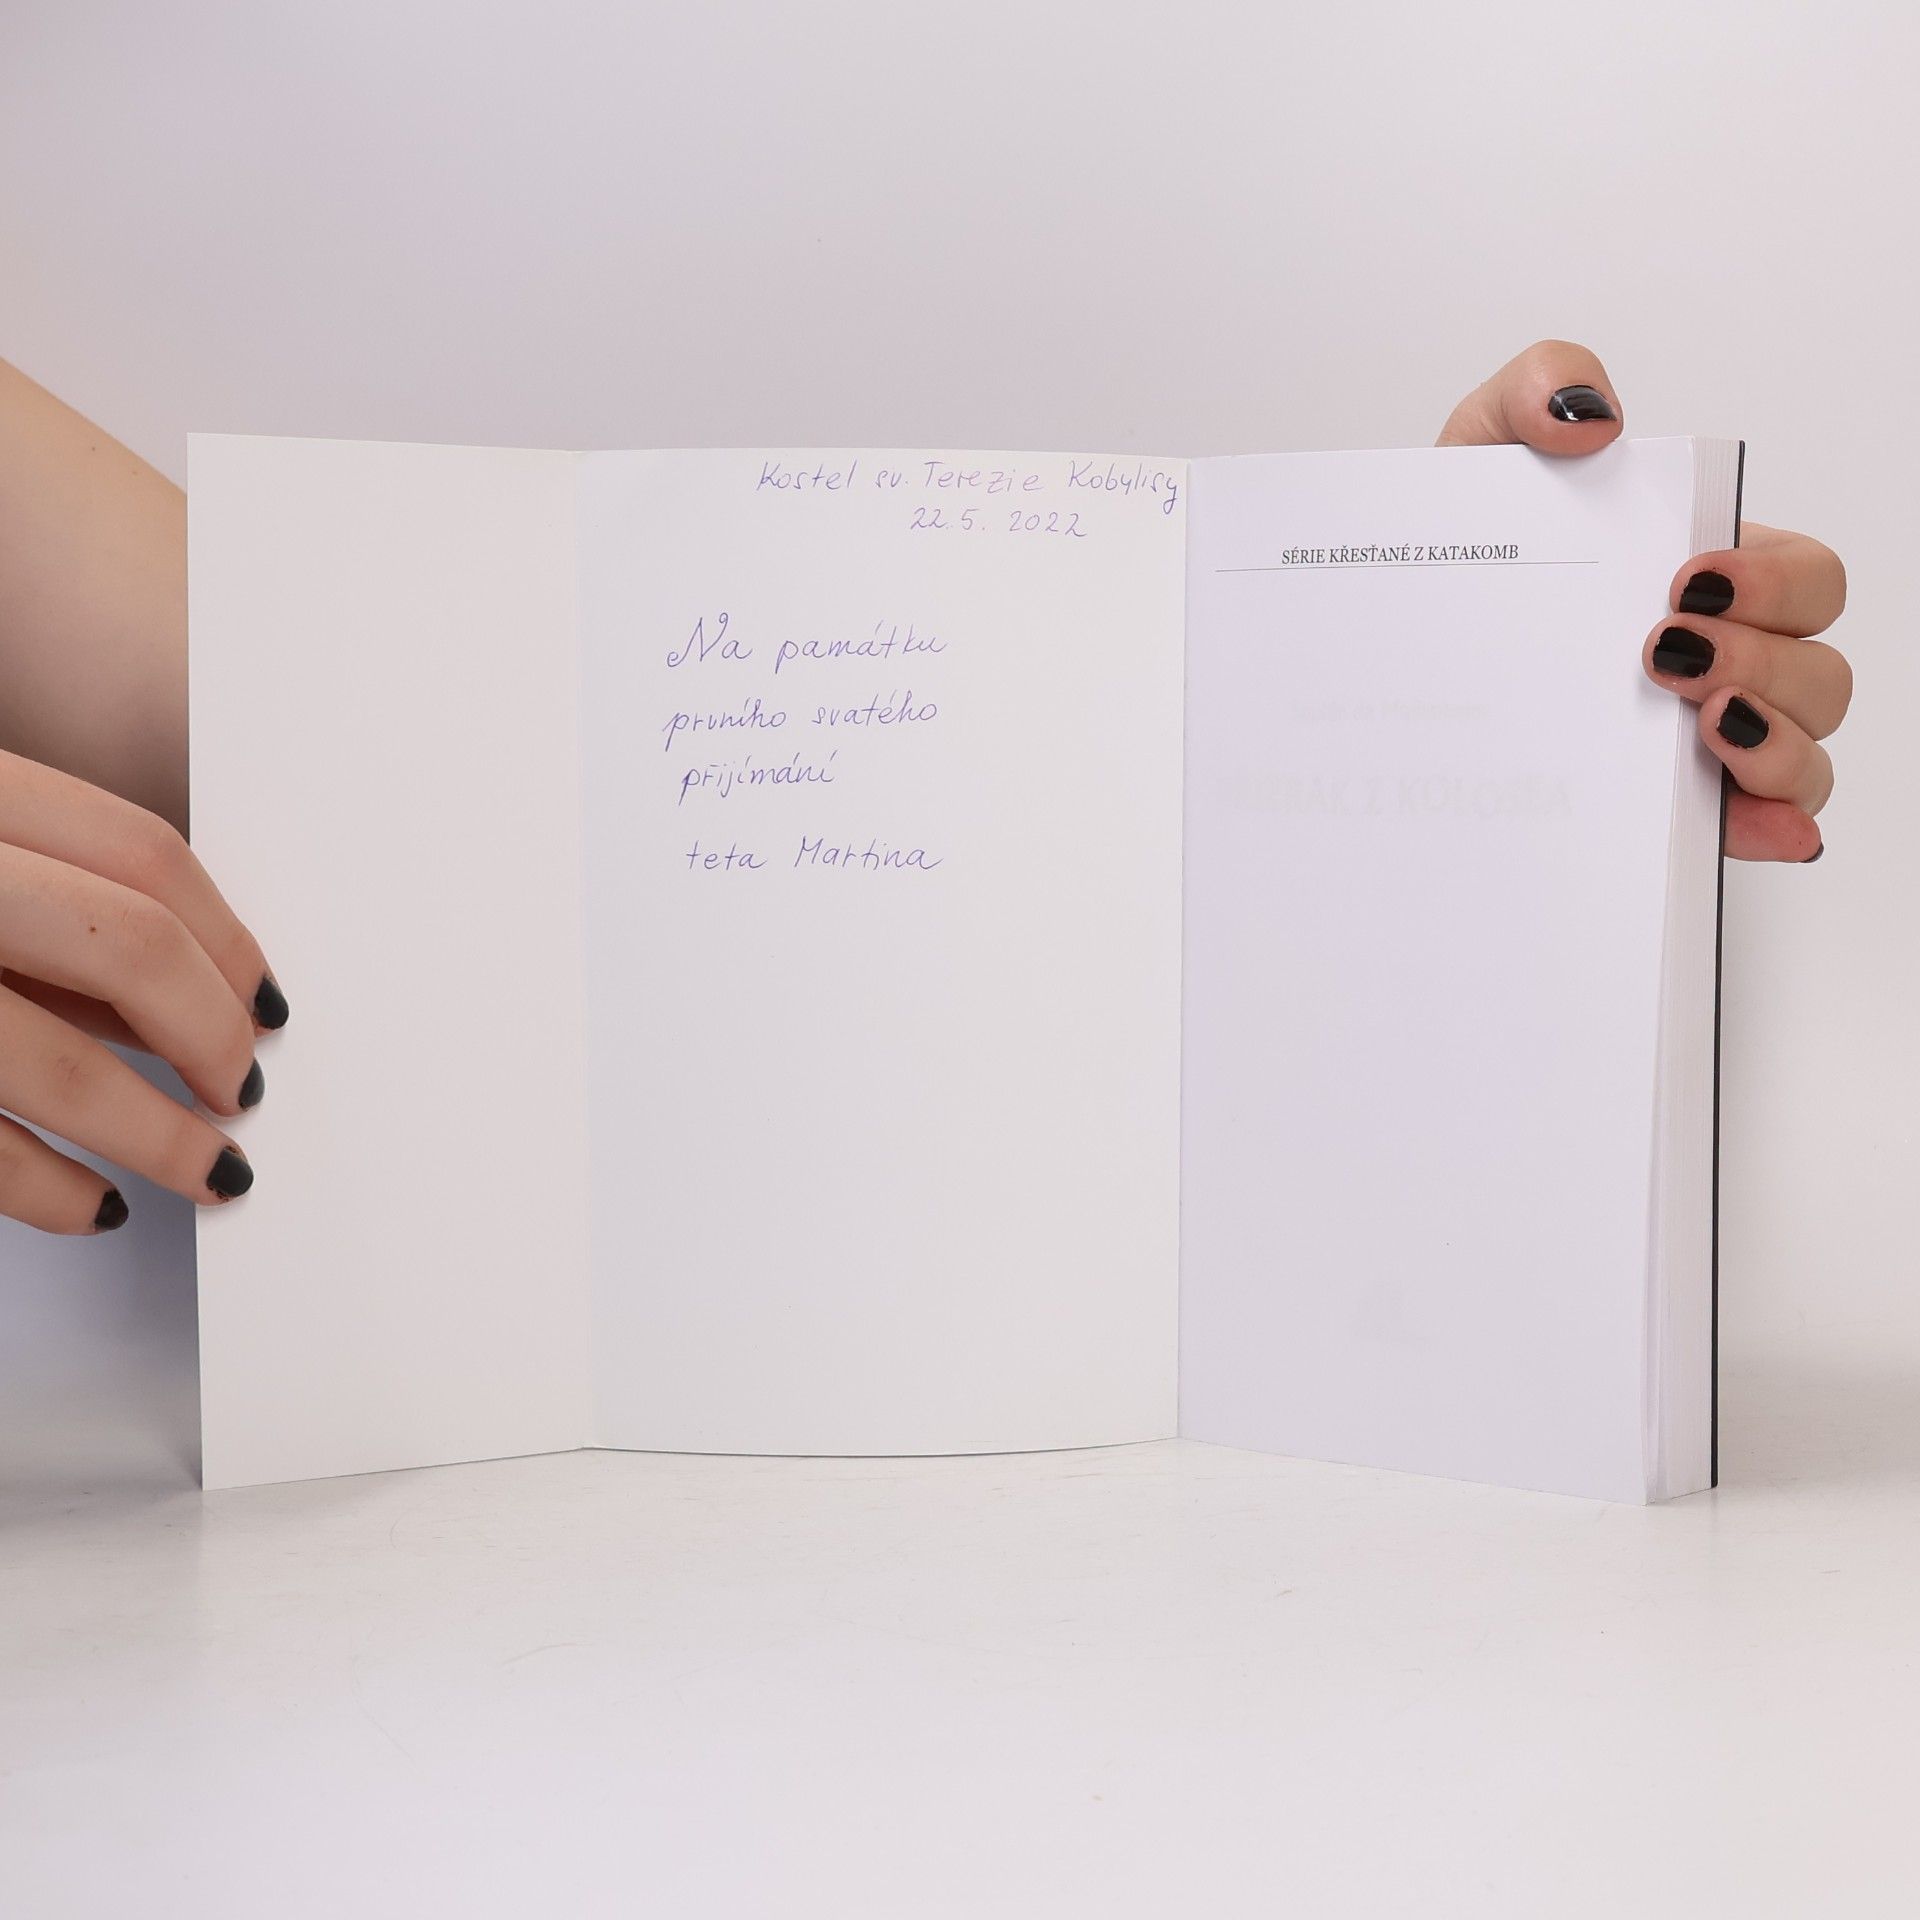 Kostel sv. Terezie Kobylisy
22.5. 2022
Na památku
prvního svatého
přijímání
teta Martina
SÉRIE KŘESŤANÉ Z KATAKOMB